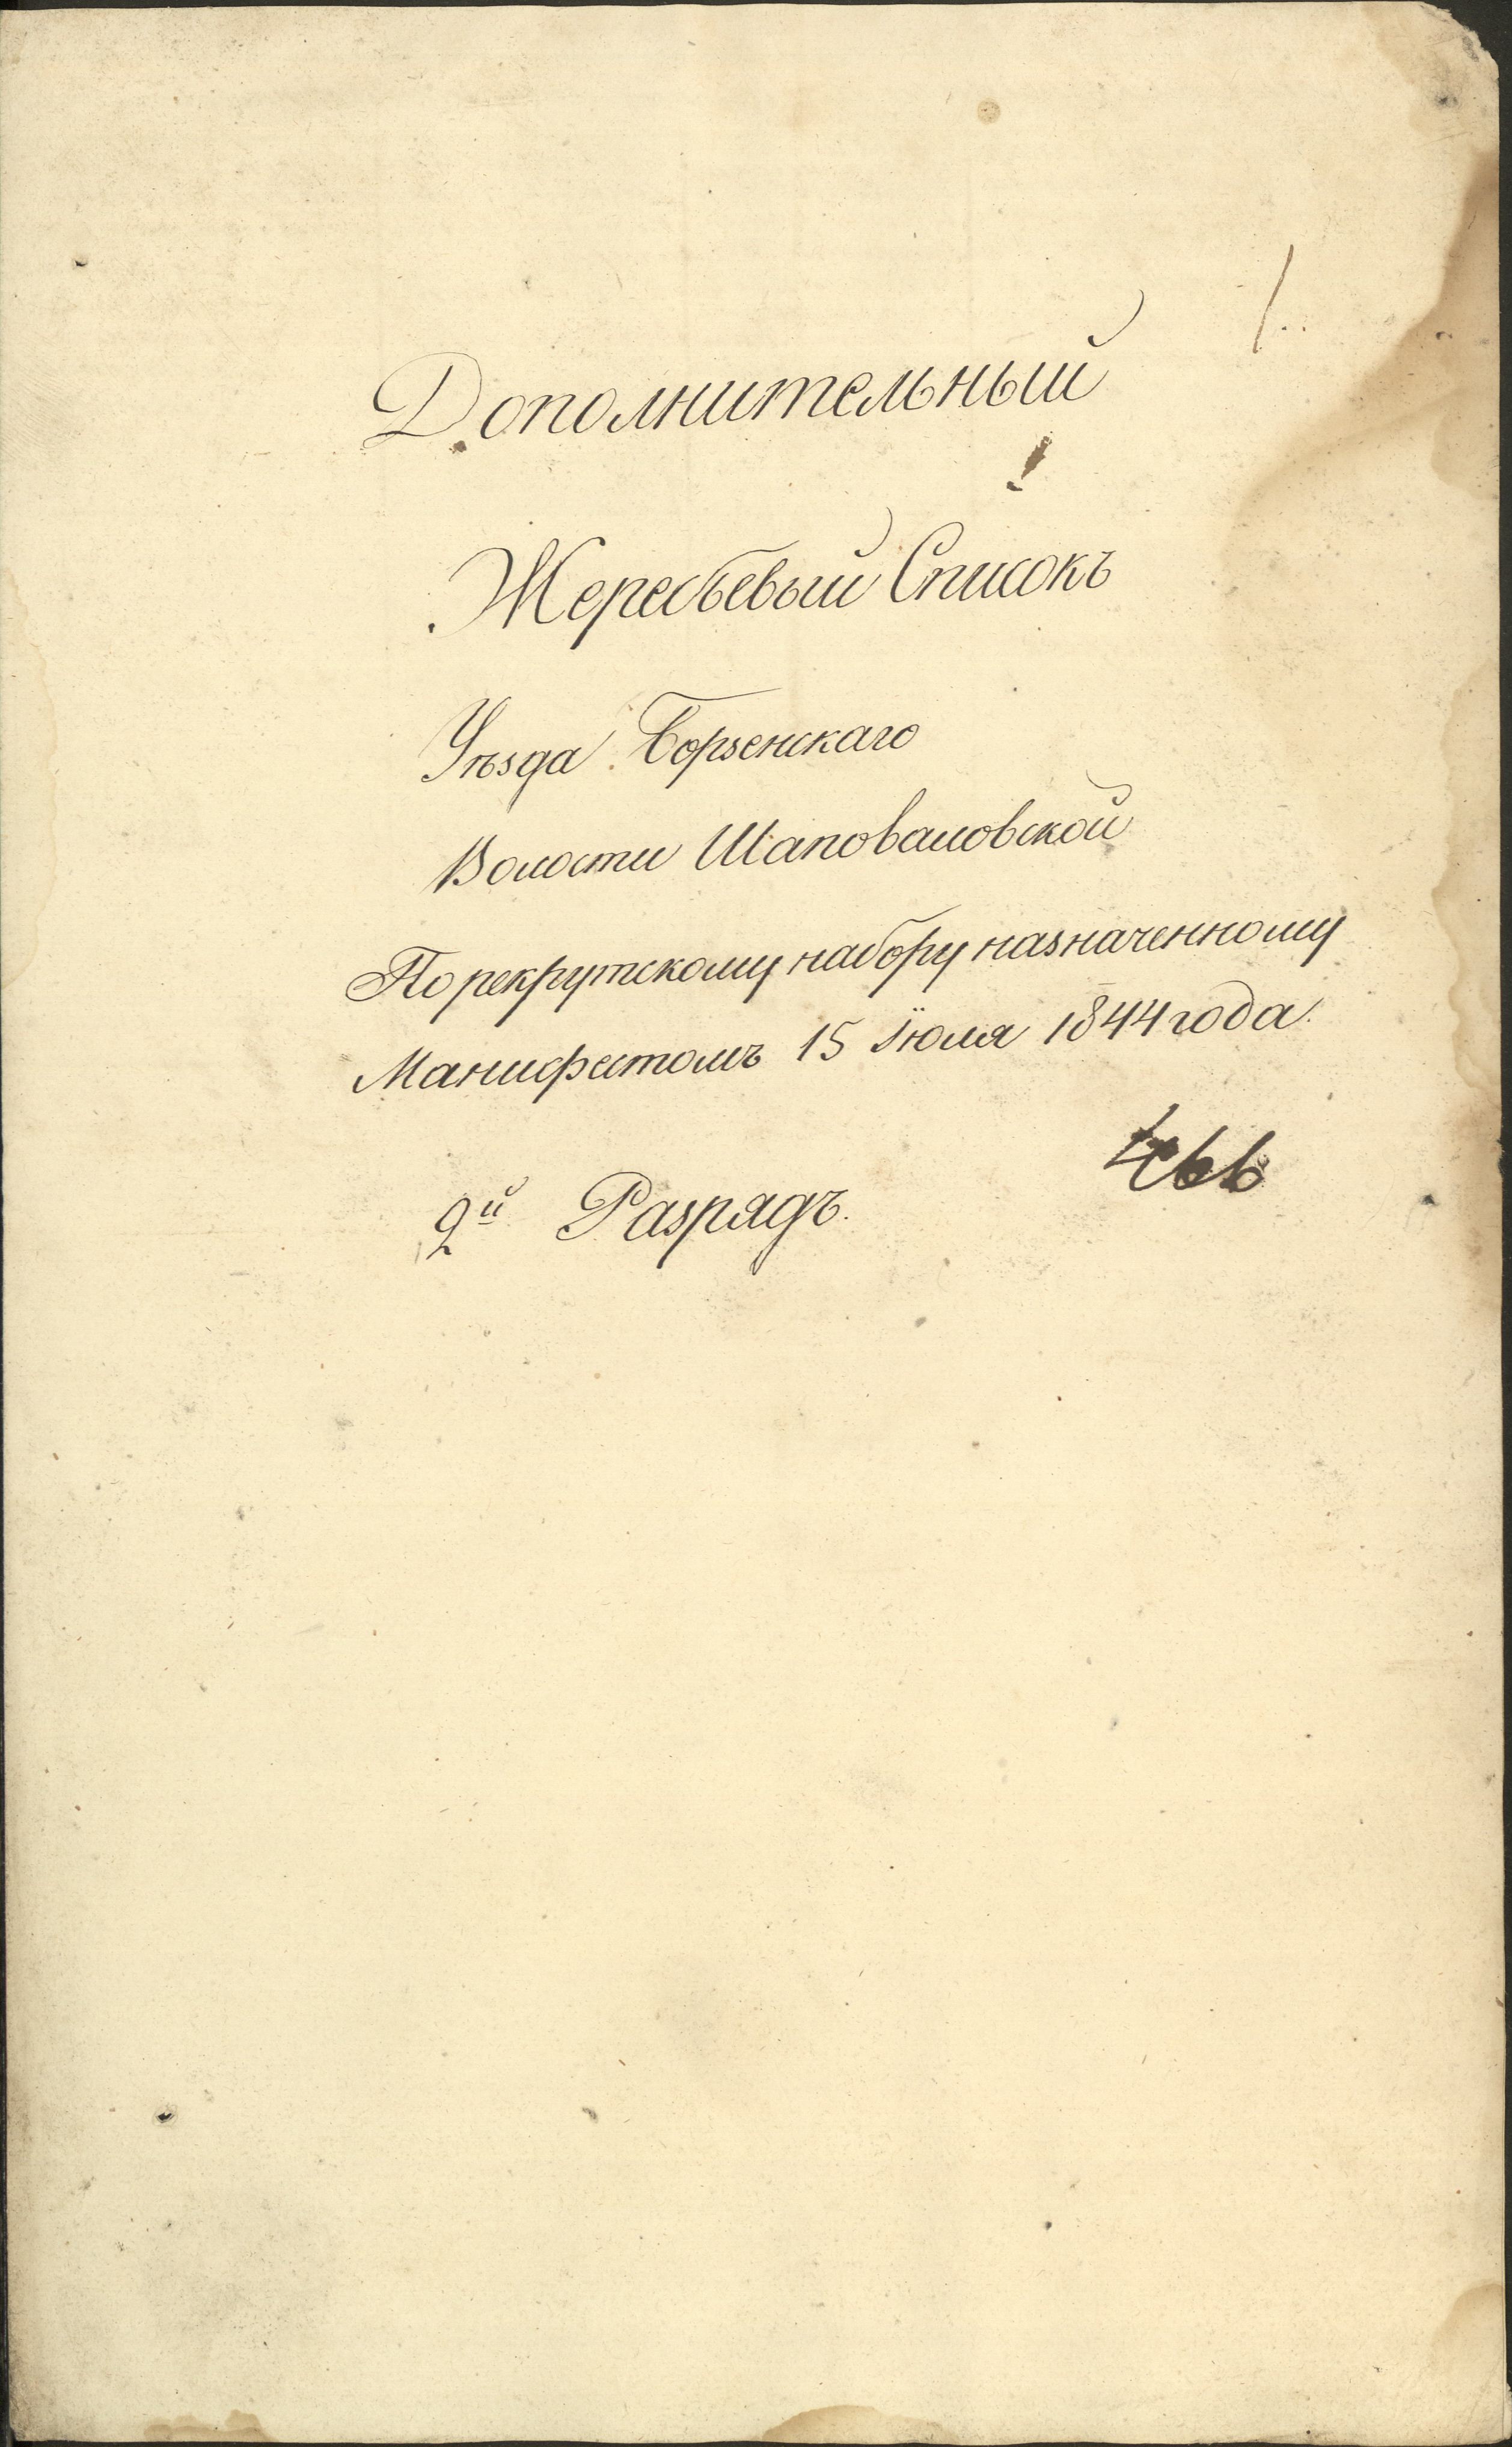 1.
Дополнительный
Жеребьевый Списокъ
Уѣзда Борзенскаго
Волости Шаповаловской
По рекрутскому набору назначенному
Манифестомъ 15 Іюля 1844 года.
2й Разрядъ.